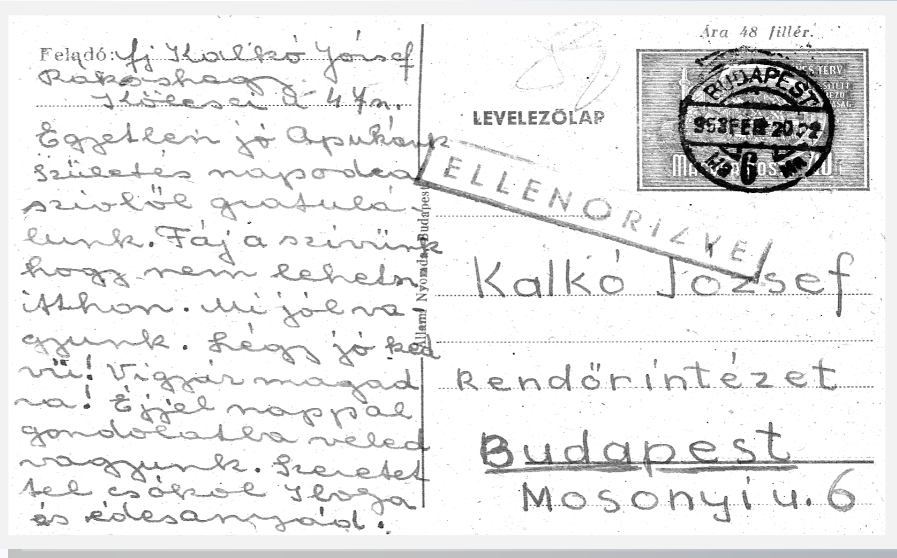 Feladó: ifj Kalkó József
Rákoshegy
Kölcsei u 47n.
Egyetlen jó Apukánk
születés napodra
szivből gratulá-
lunk. Fáj a szivünk
hogy nem lehetsz
itthon. Mi jól va
gyunk. Légy jó ked
vü! Vigyáz magad
ra! Éjjel nappal
gondolatba veled
vagyunk. Szeretet
tel csókol Ilona
és édesanyád.
Állami Nyomda, Budapest
Ára 48 fillér.
LEVELEZŐLAP
BUDAPEST
6
ELLENŐRIZVE
Kalkó József
Rendőrintézet
Budapest
Mosonyi u. 6